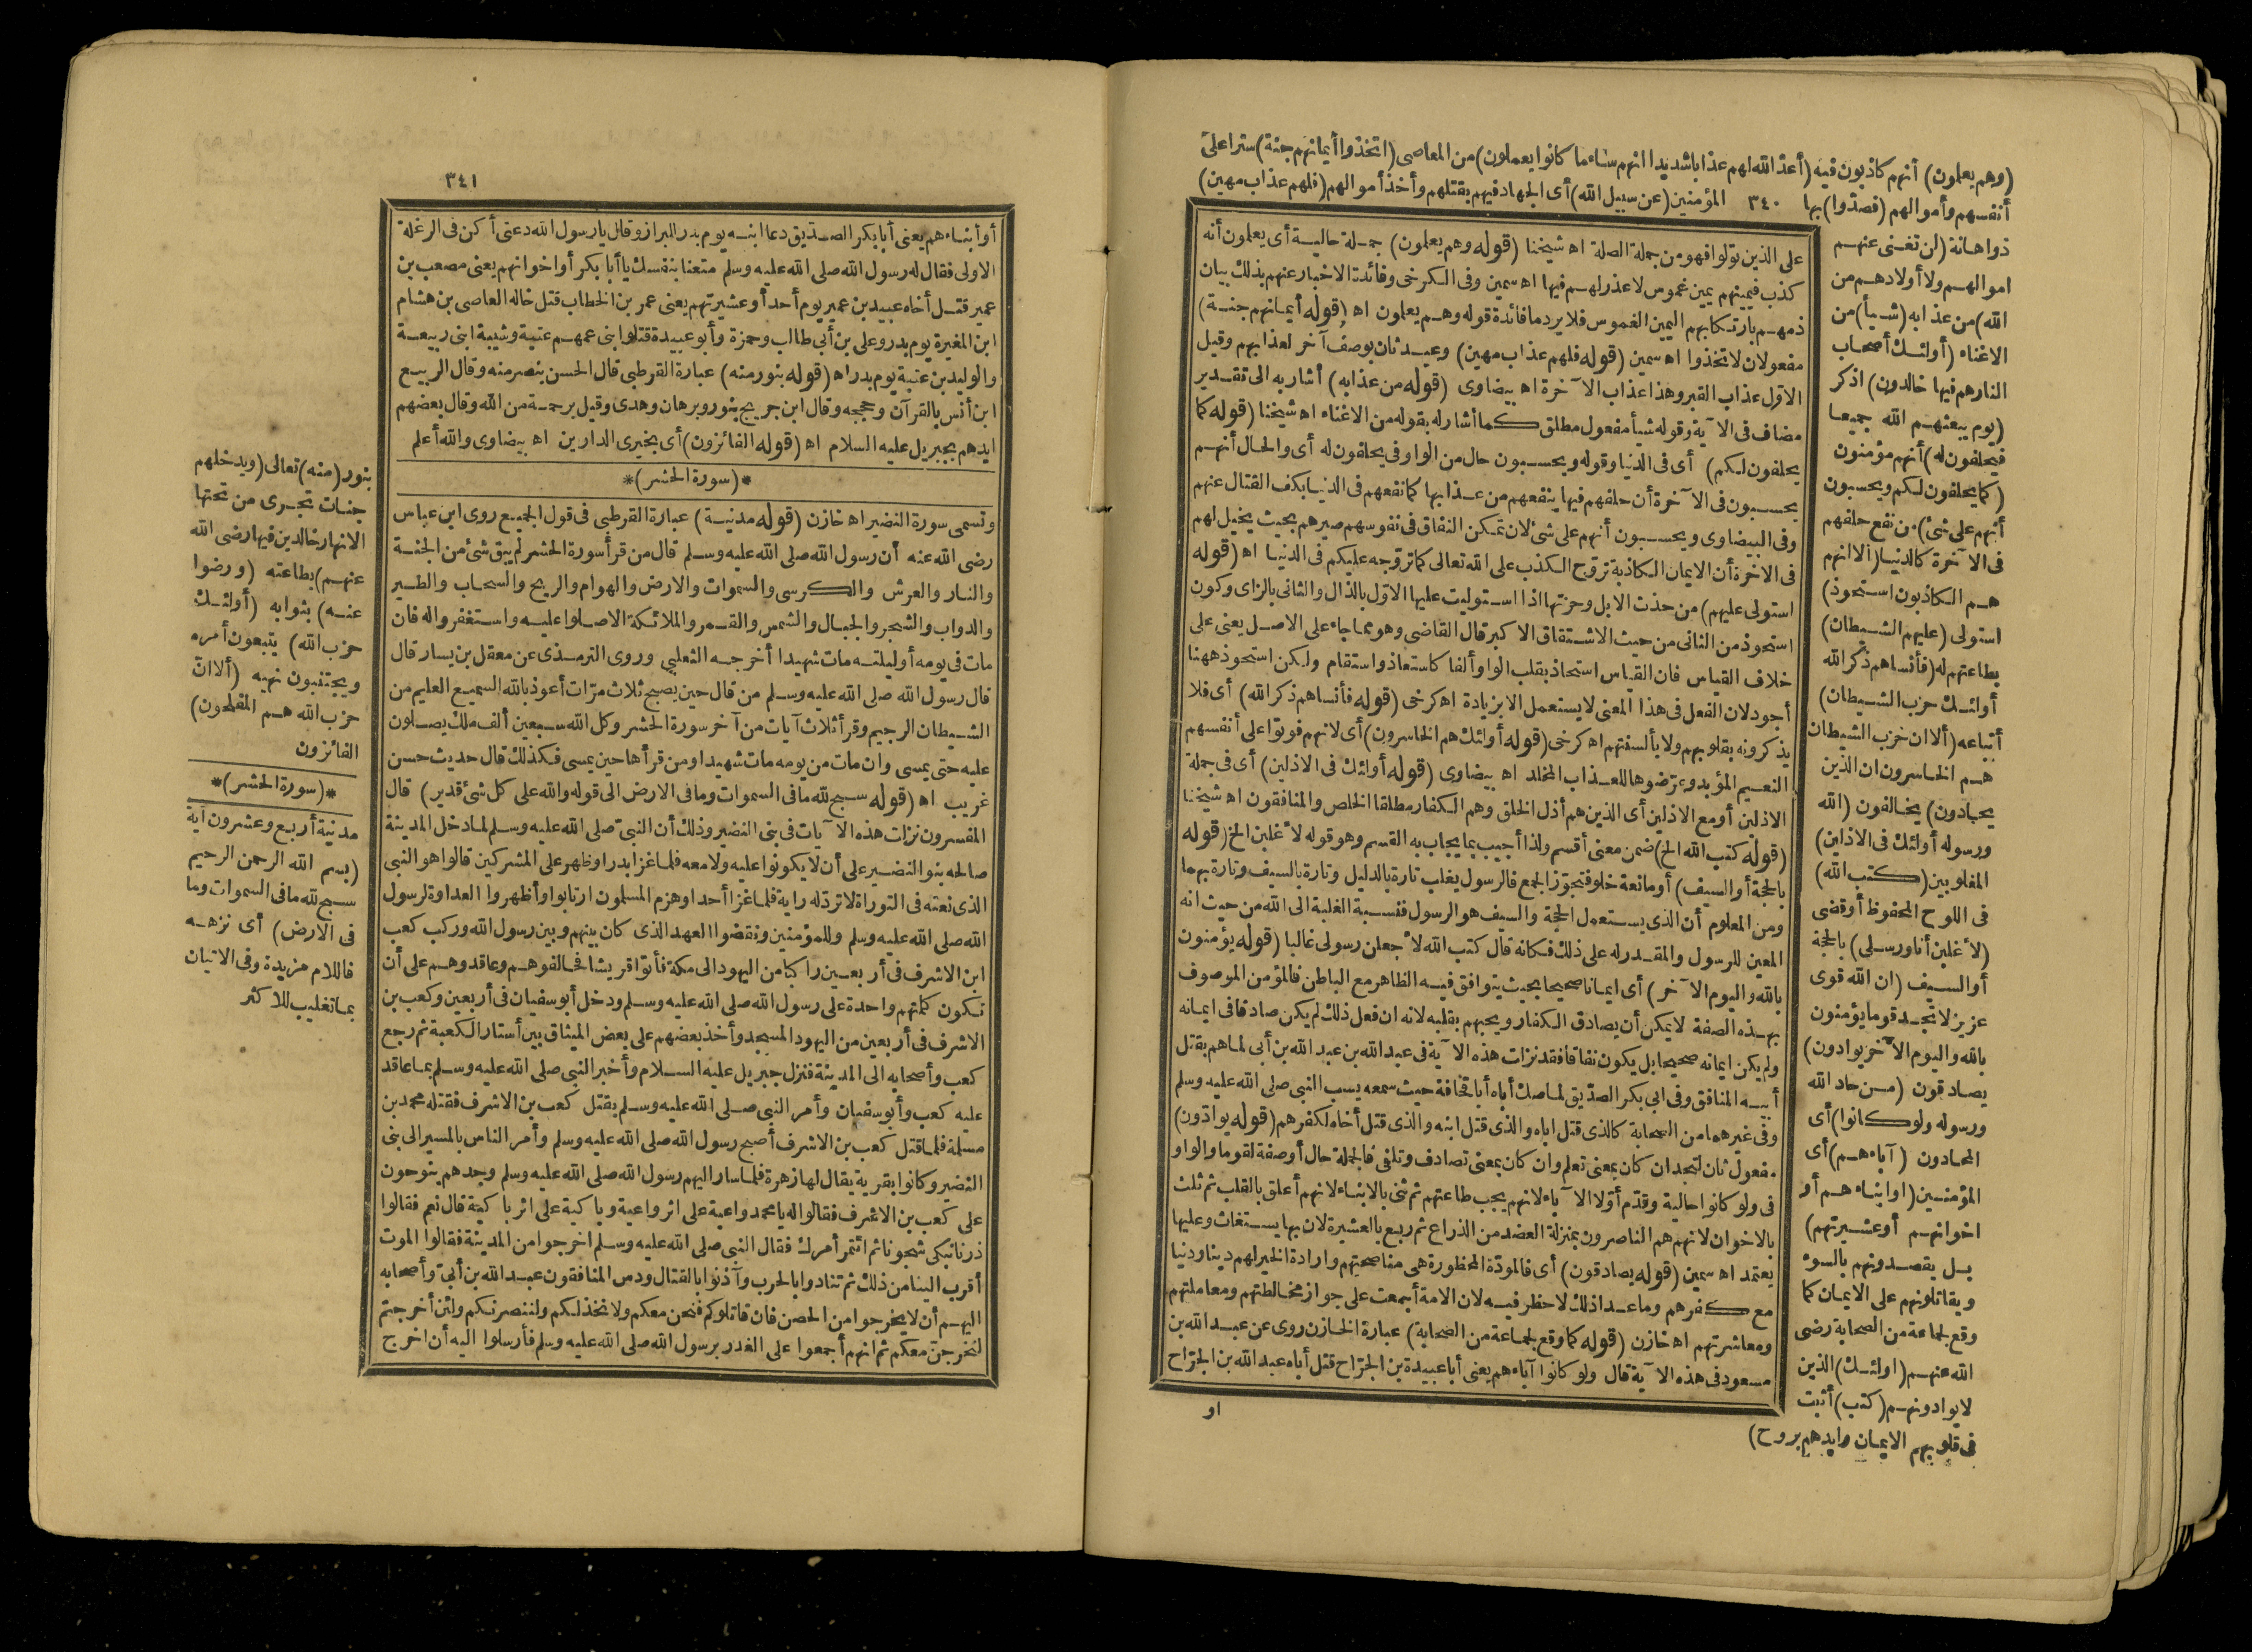 (وهم يعلمون) أنهم كاذبون فيه (أعد الله لهم عذابا شديدا انهم ساء ما كانوا يعملون) من المعاصى (اتخذوا أيمانهم جنة) سترا على
أنفسهم وأموالهم (فصدوا) بها ٣٤٠ المؤمنين (عن سبيل الله) أى الجهاد فيهم بقتلهم وأخذ أموالهم (فلهم عذاب مهين)
ذو اهانة (لن تغنى عنهم
اموالهم ولا أولادهم من
الله) من عذابه (شيأ) من
الاغناء (أولئك أصحاب
النار هم فيها خالدون) اذكر
(يوم يبعثهم الله جميعا
فيحلفون له) أنهم مؤمنون
(كما يحلفون لكم ويحسبون
أنهم على شئ) من نفع حلفهم
فى الآخرة كالدنيا (ألا انهم
هم الكاذبون استحوذ)
استولى (عليهم الشيطان)
بطاعتهم له (فأنساهم ذكر الله
أولئك حزب الشيطان)
أتباعه (ألا ان حزب الشيطان
هم الخاسرون ان الذين
يحادون) يخالفون (الله
ورسوله أولئك فى الاذلين)
المغلوبين (كتب الله)
فى اللوح المحفوظ أو قضى
(لأغلبن أنا ورسلى) بالحجة
أو السيف (ان الله قوى
عزيز لا تجد قوما يؤمنون
بالله واليوم الآخر يوادون)
يصادقون (من حاد الله
ورسوله ولو كانوا) أى
المحادون (آباءهم) أى
المؤمنين (او ابناءهم أو
اخوانهم أو عشيرتهم)
بل يقصدونهم بالسوء
ويقاتلونهم على الايمان كما
وقع لجماعة من الصحابة رضى
الله عنهم (اولئك) الذين
لا يوادونهم (كتب) أثبت
فى قلوبهم الايمان وايدهم بروح)
على الذين تولوا فهو من جملة الصلة اه شيخنا (قوله وهم يعلمون) جملة حالية أى يعلمون أنه
كذب فيمينهم يمين غموس لا عذر لهم فيها اه سمين وفى الكرخى وفائدة الاخبار عنهم بذلك بيان
ذمهم بارتكابهم اليمين الغموس فلا يرد ما فائدة قوله وهم يعلمون اه (قوله أيمانهم جنة)
مفعولان لاتخذوا اه سمين (قوله فلهم عذاب مهين) وعيد ثان بوصف آخر لعذابهم وقيل
الاول عذاب القبر وهذا عذاب الآخرة اه بيضاوى (قوله من عذابه) أشار به الى تقدير
مضاف فى الآية وقوله شيأ مفعول مطلق كما أشار له بقوله من الاغناء اه شيخنا (قوله كما
يحلفون لكم) أى فى الدنيا وقوله ويحسبون حال من الواو فى يحلفون له أى والحال أنهم
يحسبون فى الآخرة أن حلفهم فيها ينفعهم من عذابها كما نفعهم فى الدنيا بكف القتال عنهم
وفى البيضاوى ويحسبون أنهم على شئ لان تمكن النفاق فى نفوسهم صيرهم بحيث يخيل لهم
فى الآخرة أن الايمان الكاذبة تروج الكذب على الله تعالى كما تروجه عليكم فى الدنيا اه (قوله
استولى عليهم) من حذت الابل وحزتها اذا استوليت عليها الاول بالذال والثانى بالزاى وكون
استحوذ من الثانى من حيث الاشتقاق الاكبر قال القاضى وهو مما جاء على الاصل يعنى على
خلاف القياس فان القياس استحاذ بقلب الواو ألفا كاستعاذ واستقام ولكن استحوذ ههنا
أجود لان الفعل فى هذا المعنى لا يستعمل الا بزيادة اه كرخى (قوله فأنساهم ذكر الله) أى فلا
يذكرونه بقلوبهم ولا بألسنتهم اه كرخى (قوله أولئك هم الخاسرون) أى لانهم فوتوا على أنفسهم
النعيم المؤبد وعرضوها للعذاب المخلد اه بيضاوى (قوله أولئك فى الاذلين) أى فى جملة
الاذلين أو مع الاذلين أى الذين هم أذل الخلق وهم الكفار مطلقا الخلص والمنافقون اه شيخنا
(قوله كتب الله الخ) ضمن معنى أقسم ولذا أجيب بما يجاب به القسم وهو قوله لأغلبن الخ (قوله
بالحجة أو السيف) أو مانعة خلو فتجوز الجمع فالرسول يغلب تارة بالدليل وتارة بالسيف وتارة بهما
ومن المعلوم أن الذى يستعمل الحجة والسيف هو الرسول فنسبة الغلبة الى الله من حيث انه
المعين للرسول والمقدر له على ذلك فكانه قال كتب الله لأجعلن رسولى غالبا (قوله يؤمنون
بالله واليوم الآخر) أى ايمانا صحيحا بحيث يتوافق فيه الظاهر مع الباطن فالمؤمن الموصوف
بهذه الصفة لا يمكن أن يصادق الكفار ويحبهم بقلبه لانه ان فعل ذلك لم يكن صادقا فى ايمانه
ولم يكن ايمانه صحيحا بل يكون نفاقا فقد نزلت هذه الآية فى عبد الله بن عبد الله بن أبى لما هم بقتل
أبيه المنافق وفى ابى بكر الصديق لما صك أباه أبا قحافة حيث سمعه يسب النبى صلى الله عليه وسلم
وفى غيرهما من الصحابة كالذى قتل اباه والذى قتل ابنه والذى قتل أخاه لكفرهم (قوله يوادون)
مفعول ثان لتجد ان كان بمعنى تعلم وان كان بمعنى تصادف وتلقى فالجملة حال أو صفة لقوما والواو
فى ولو كانوا حالية وقدم أولا الآباء لانهم يجب طاعتهم ثم ثنى بالابناء لانهم أعلق بالقلب ثم ثلث
بالاخوان لانهم هم الناصرون بمنزلة العضد من الذراع ثم ربع بالعشيرة لان بها يستغاث وعليها
يعتمد اه سمين (قوله يصادقون) أى فالمودة المحظورة هى مناصحتهم وارادة الخير لهم دينا ودنيا
مع كفرهم وما عدا ذلك لا حظر فيه لان الامة أجمعت على جواز مخالطتهم ومعاملتهم
ومعاشرتهم اه خازن (قوله كما وقع لجماعة من الصحابة) عبارة الخازن روى عن عبد الله بن
مسعود فى هذه الآية قال ولو كانوا آباءهم يعنى أبا عبيدة بن الجراح قتل أباه عبد الله بن الجراح
او
٣٤١
أو أبناءهم يعنى أبا بكر الصديق دعا ابنه يوم بدر للبراز وقال يا رسول الله دعنى أكن فى الرعلة
الاولى فقال له رسول الله صلى الله عليه وسلم متعنا بنفسك يا أبا بكر أو اخوانهم يعنى مصعب بن
عمير قتل أخاه عبيد بن عمير يوم أحد أو عشيرتهم يعنى عمر بن الخطاب قتل خاله العاصى بن هشام
ابن المغيرة يوم بدر وعلى بن أبى طالب وحمزة وأبو عبيدة قتلوا بنى عمهم عتبة وشيبة ابنى ربيعة
والوليد بن عتبة يوم بدر اه (قوله بنور منه) عبارة القرطبى قال الحسن بنصر منه وقال الربيع
ابن أنس بالقرآن وحججه وقال ابن جريج بنور وبرهان وهدى وقيل برحمة من الله وقال بعضهم
ايدهم بجبريل عليه السلام اه (قوله الفائزون) أى بخيرى الدارين اه بيضاوى والله أعلم
*(سورة الحشر)*
وتسمى سورة النضير اه خازن (قوله مدنية) عبارة القرطبى فى قول الجميع روى ابن عباس
رضى الله عنه أن رسول الله صلى الله عليه وسلم قال من قرأ سورة الحشر لم يبق شئ من الجنة
والنار والعرش والكرسى والسموات والارض والهوام والريح والسحاب والطير
والدواب والشجر والجبال والشمس والقمر والملائكة الا صلوا عليه واستغفروا له فان
مات فى يومه أو ليلته مات شهيدا أخرجه الثعلبى وروى الترمذى عن معقل بن يسار قال
قال رسول الله صلى الله عليه وسلم من قال حين يصبح ثلاث مرات أعوذ بالله السميع العليم من
الشيطان الرجيم وقرأ ثلاث آيات من آخر سورة الحشر وكل الله سبعين ألف ملك يصلون
عليه حتى يمسى وان مات من يومه مات شهيدا ومن قرأها حين يمسى فكذلك قال حديث حسن
غريب اه (قوله سبح لله ما فى السموات وما فى الارض الى قوله والله على كل شئ قدير) قال
المفسرون نزلت هذه الآيات فى بنى النضير وذلك أن النبى صلى الله عليه وسلم لما دخل المدينة
صالحه بنو النضير على أن لا يكونوا عليه ولا معه فلما غزا بدرا وظهر على المشركين قالوا هو النبى
الذى نعته فى التوراة لا ترد له راية فلما غزا أحدا وهزم المسلمون ارتابوا وأظهروا العداوة لرسول
الله صلى الله عليه وسلم وللمؤمنين ونقضوا العهد الذى كان بينهم وبين رسول الله وركب كعب
ابن الاشرف فى أربعين راكبا من اليهود الى مكة فأتوا قريشا فحالفوهم وعاقدوهم على أن
تكون كلمتهم واحدة على رسول الله صلى الله عليه وسلم ودخل أبو سفيان فى أربعين وكعب بن
الاشرف فى أربعين من اليهود المسجد وأخذ بعضهم على بعض الميثاق بين أستار الكعبة ثم رجع
كعب وأصحابه الى المدينة فنزل جبريل عليه السلام وأخبر النبى صلى الله عليه وسلم بما عاقد
عليه كعب وأبو سفيان وأمر النبى صلى الله عليه وسلم بقتل كعب بن الاشرف فقتله محمد بن
مسلمة فلما قتل كعب بن الاشرف أصبح رسول الله صلى الله عليه وسلم وأمر الناس بالمسير الى بنى
النضير وكانوا بقرية يقال لها زهرة فلما سار اليهم رسول الله صلى الله عليه وسلم وجدهم ينوحون
على كعب بن الاشرف فقالوا له يا محمد واعية على اثر واعية وباكية على اثر باكية قال نعم فقالوا
ذرنا نبكى شجونا ثم ائتمر أمرك فقال النبى صلى الله عليه وسلم اخرجوا من المدينة فقالوا الموت
أقرب الينا من ذلك ثم تنادوا بالحرب وآذنوا بالقتال ودس المنافقون عبد الله بن أبى وأصحابه
اليهم أن لا يخرجوا من الحصن فان قاتلوكم فنحن معكم ولا نخذلكم ولننصرنكم ولئن أخرجتم
لنخرجن معكم ثم انهم أجمعوا على الغدر برسول الله صلى الله عليه وسلم فأرسلوا اليه أن اخرج
بنور (منه) تعالى (ويدخلهم
جنات تجرى من تحتها
الانهار خالدين فيها رضى الله
عنهم) بطاعته (ورضوا
عنه) بثوابه (أولئك
حزب الله) يتبعون أمره
ويجتنبون نهيه (ألا ان
حزب الله هم المفلحون)
الفائزون
*(سورة الحشر)*
مدنية أربع وعشرون آية
(بسم الله الرحمن الرحيم
سبح لله ما فى السموات وما
فى الارض) أى نزهه
فاللام مزيدة وفى الاتيان
بما تغليب للاكثر